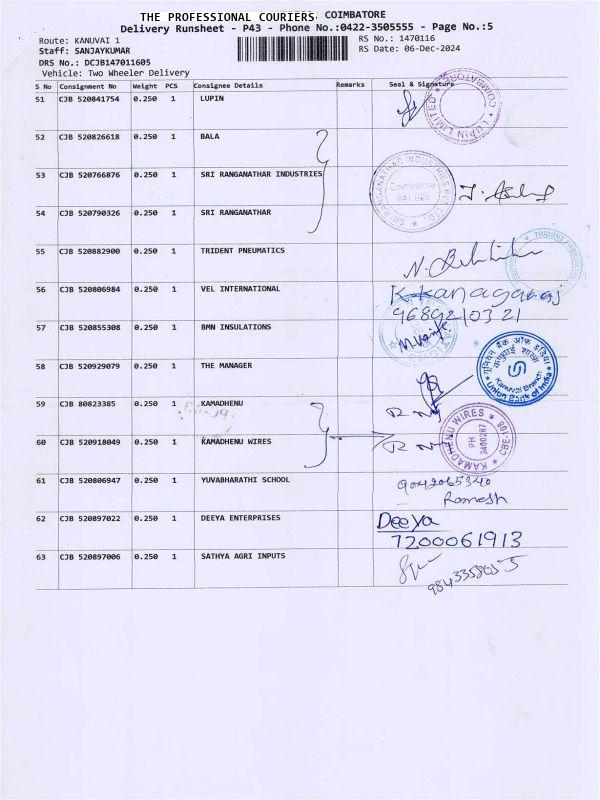 THE PROFESSIONAL COURIERS, COIMBATORE
Delivery Runsheet - P43 - Phone No.:0422-3505555 - Page No.:5
Route: KANUVAI 1
RS No.: 1470116
Staff: SANJAYKUMAR
RS Date: 06-Dec-2024
DRS No.: DCJB147011605
Vehicle: Two Wheeler Delivery
S No Consignment No Weight PCS Consignee Details Remarks Seal & Signature
51 CJB 520841754 0.250 1 LUPIN
LUPIN LIMITED COIMBATORE
52 CJB 520826618 0.250 1 BALA
53 CJB 520766876 0.250 1 SRI RANGANATHAR INDUSTRIES
SRI RANGANATHAR INDUSTRIES PVT LTD. Coimbatore
54 CJB 520790326 0.250 1 SRI RANGANATHAR
55 CJB 520882900 0.250 1 TRIDENT PNEUMATICS
TRIDENT PNEUMATICS
56 CJB 520806984 0.250 1 VEL INTERNATIONAL K.Kanagaraj
9689210321
57 CJB 520855308 0.250 1 BMN INSULATIONS
58 CJB 520929079 0.250 1 THE MANAGER
यूनियन बैंक ऑफ इंडिया
Kanuvai Branch
Union Bank of India
59 CJB 80823385 0.250 1 KAMADHENU
60 CJB 520918049 0.250 1 KAMADHENU WIRES
KAMADHENU WIRES PH 2400287 CBE-
61 CJB 520806947 0.250 1 YUVABHARATHI SCHOOL 9042065340
Ramesh
62 CJB 520897022 0.250 1 DEEYA ENTERPRISES Deeya
7200061913
63 CJB 520897006 0.250 1 SATHYA AGRI INPUTS